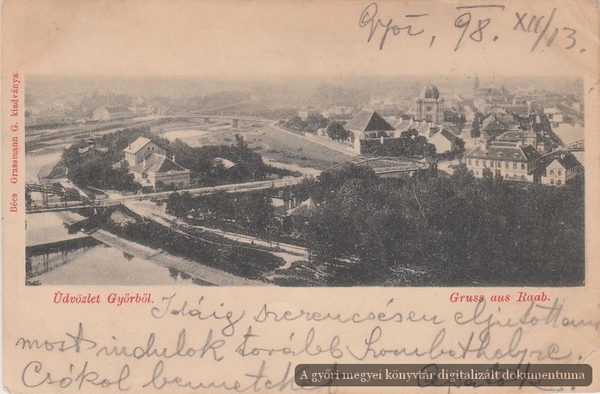 Győr, 98. XII/13.
Bécs Grassmann G. kiadványa.
Üdvözlet Győrből.
Gruss aus Raab.
Idáig szerencsésen eljutottam
most indulok tovább Szombathelyre.
Csókol benneteket
A győri megyei könyvtár digitalizált dokumentuma